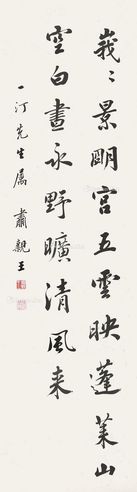 峩〻景明宮五雲映蓬萊山
空白晝永野曠清風来
一汀先生属 肅親王